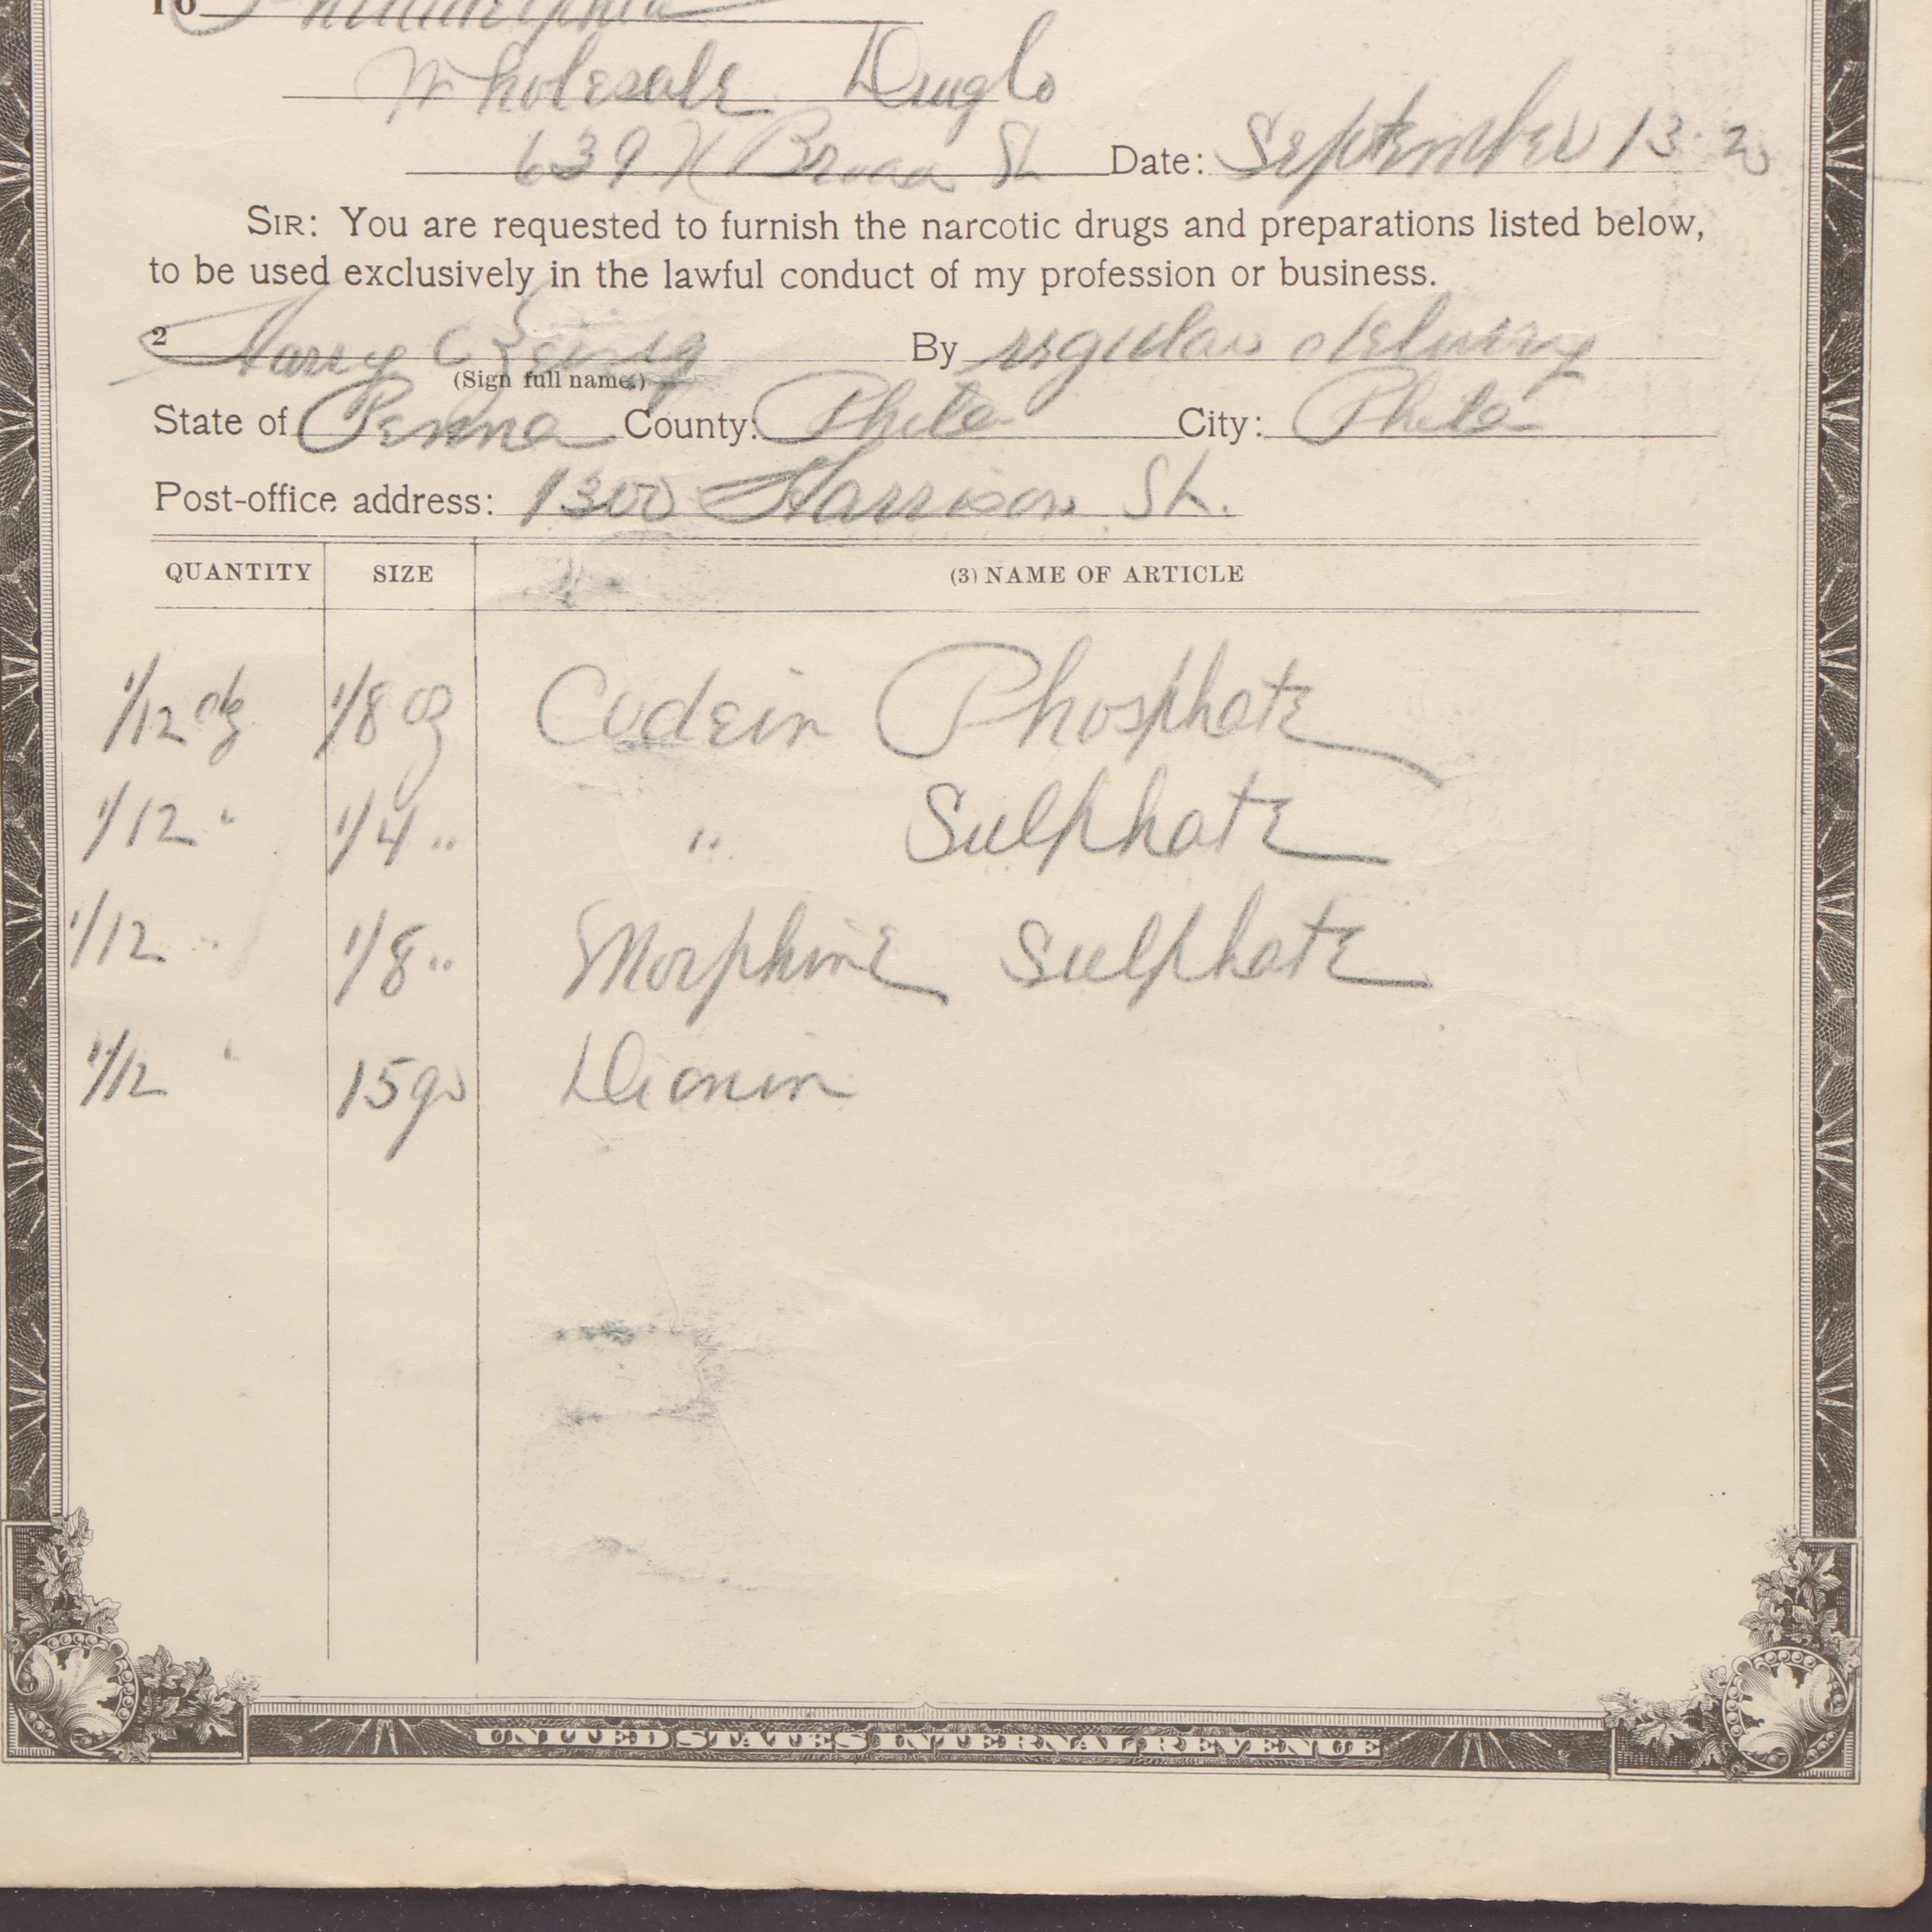 To Philadelphia
Wholesale Drug Co
639 N Broad St Date: September 13 · 20
SIR: You are requested to furnish the narcotic drugs and preparations listed below,
to be used exclusively in the lawful conduct of my profession or business.
2 Harry C By regular delivery
(Sign full name.)
State of Penna County: Phila City: Phila
Post-office address: 1300 Harrison St.
QUANTITY SIZE (3) NAME OF ARTICLE
1/12 dz 1/8 oz Codein Phosphate
1/12 " 1/4 " " Sulphate
1/12 " 1/8 " Morphine Sulphate
1/12 " 15 gr Dionin
UNITED STATES INTERNAL REVENUE